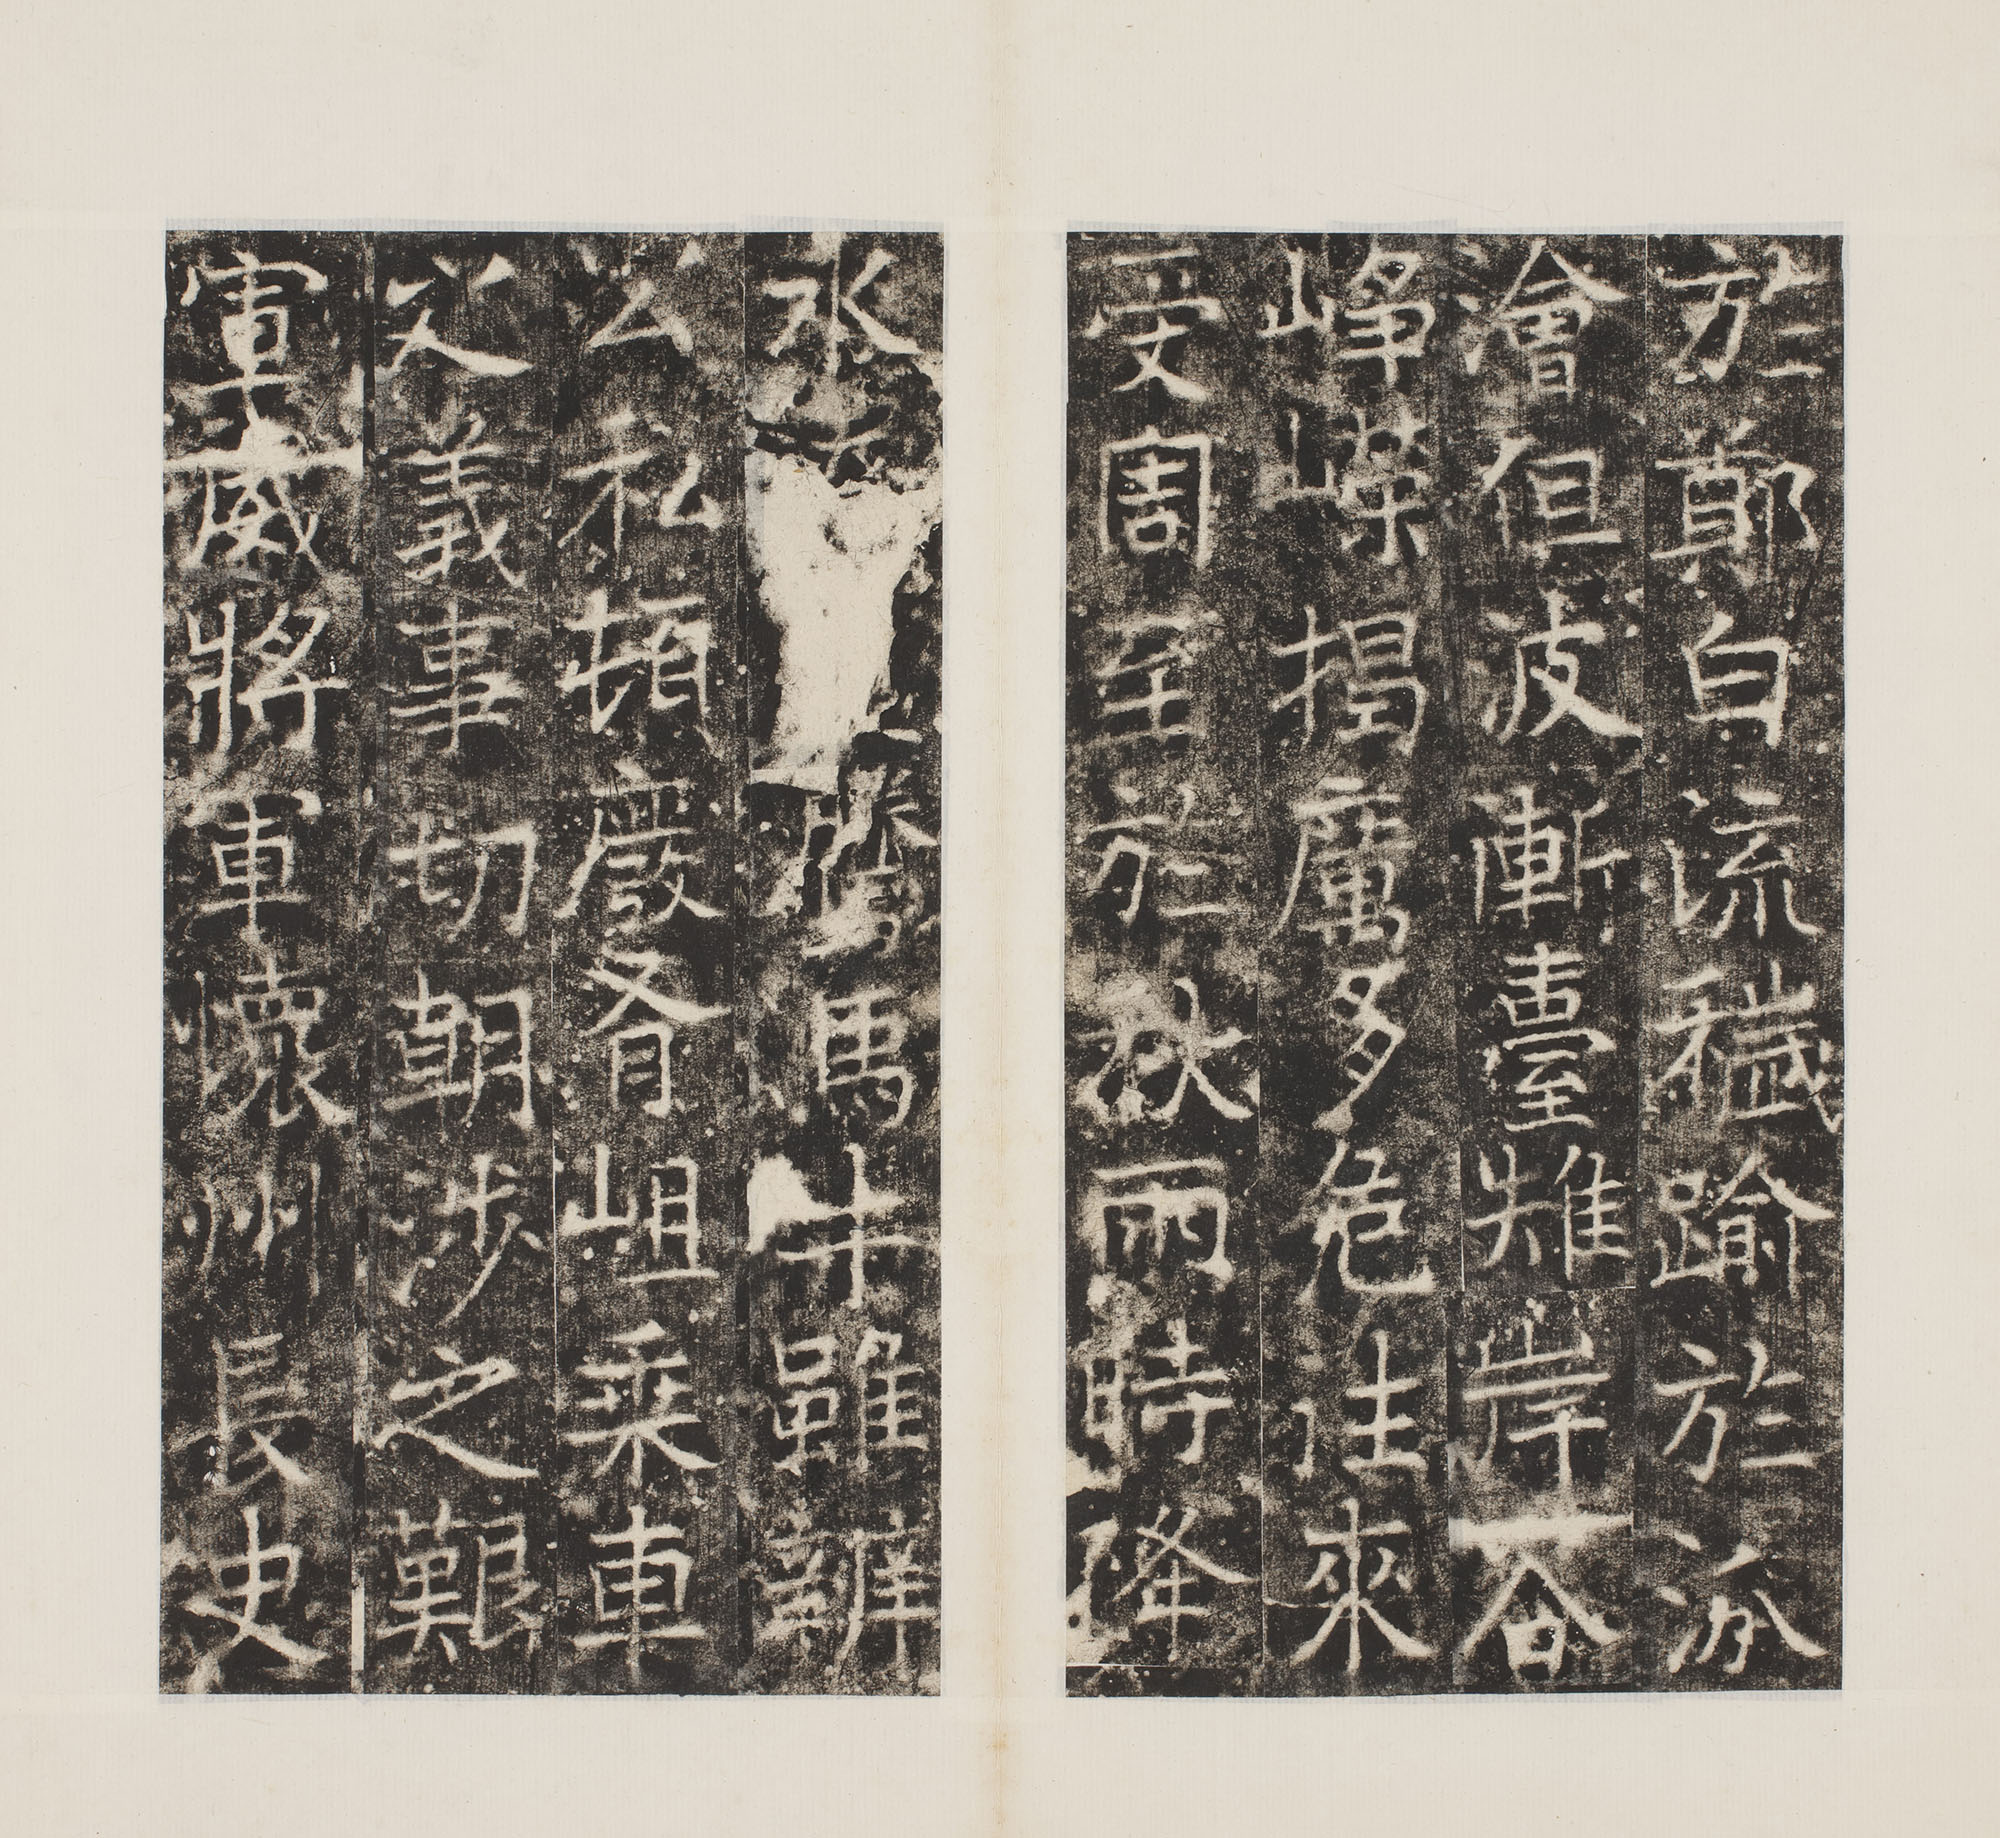 於鄭白流穢踰於汾
澮但波漸臺雉岸谷
崢嶸揭厲多危往來
受害至於秋雨時降
水
馬牛難辨
公私頓廢胥岨乘車
父義事切朝涉之艱
軍威將軍懷州長史